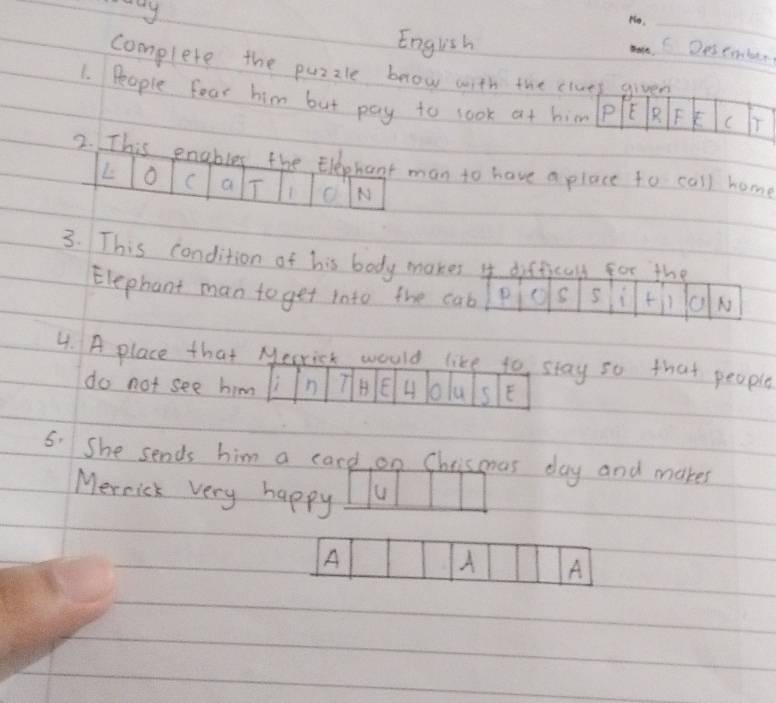 ay
No.
English
Date. 6 Desember
Complete the puzzle below with the clues given
1. People fear him but pay to look at him P E R F E C T
2. This enables the Elephant man to have a place to call home
L O C a T i O N
3. This condition of his body makes it difficult for the
Elephant man to get into the cab P O S S i t i O N
4. A place that Merrick would like to stay so that people
do not see him i n T H E H O u S E
5. She sends him a card on Chrismas day and makes
Merrick very happy u
A A A